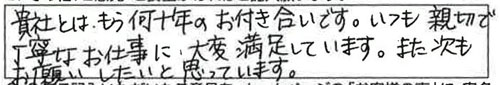 貴社とは、もう何十年のお付き合いです。いつも親切で
丁寧なお仕事に、大変満足しています。また次も
お願いしたいと思っています。